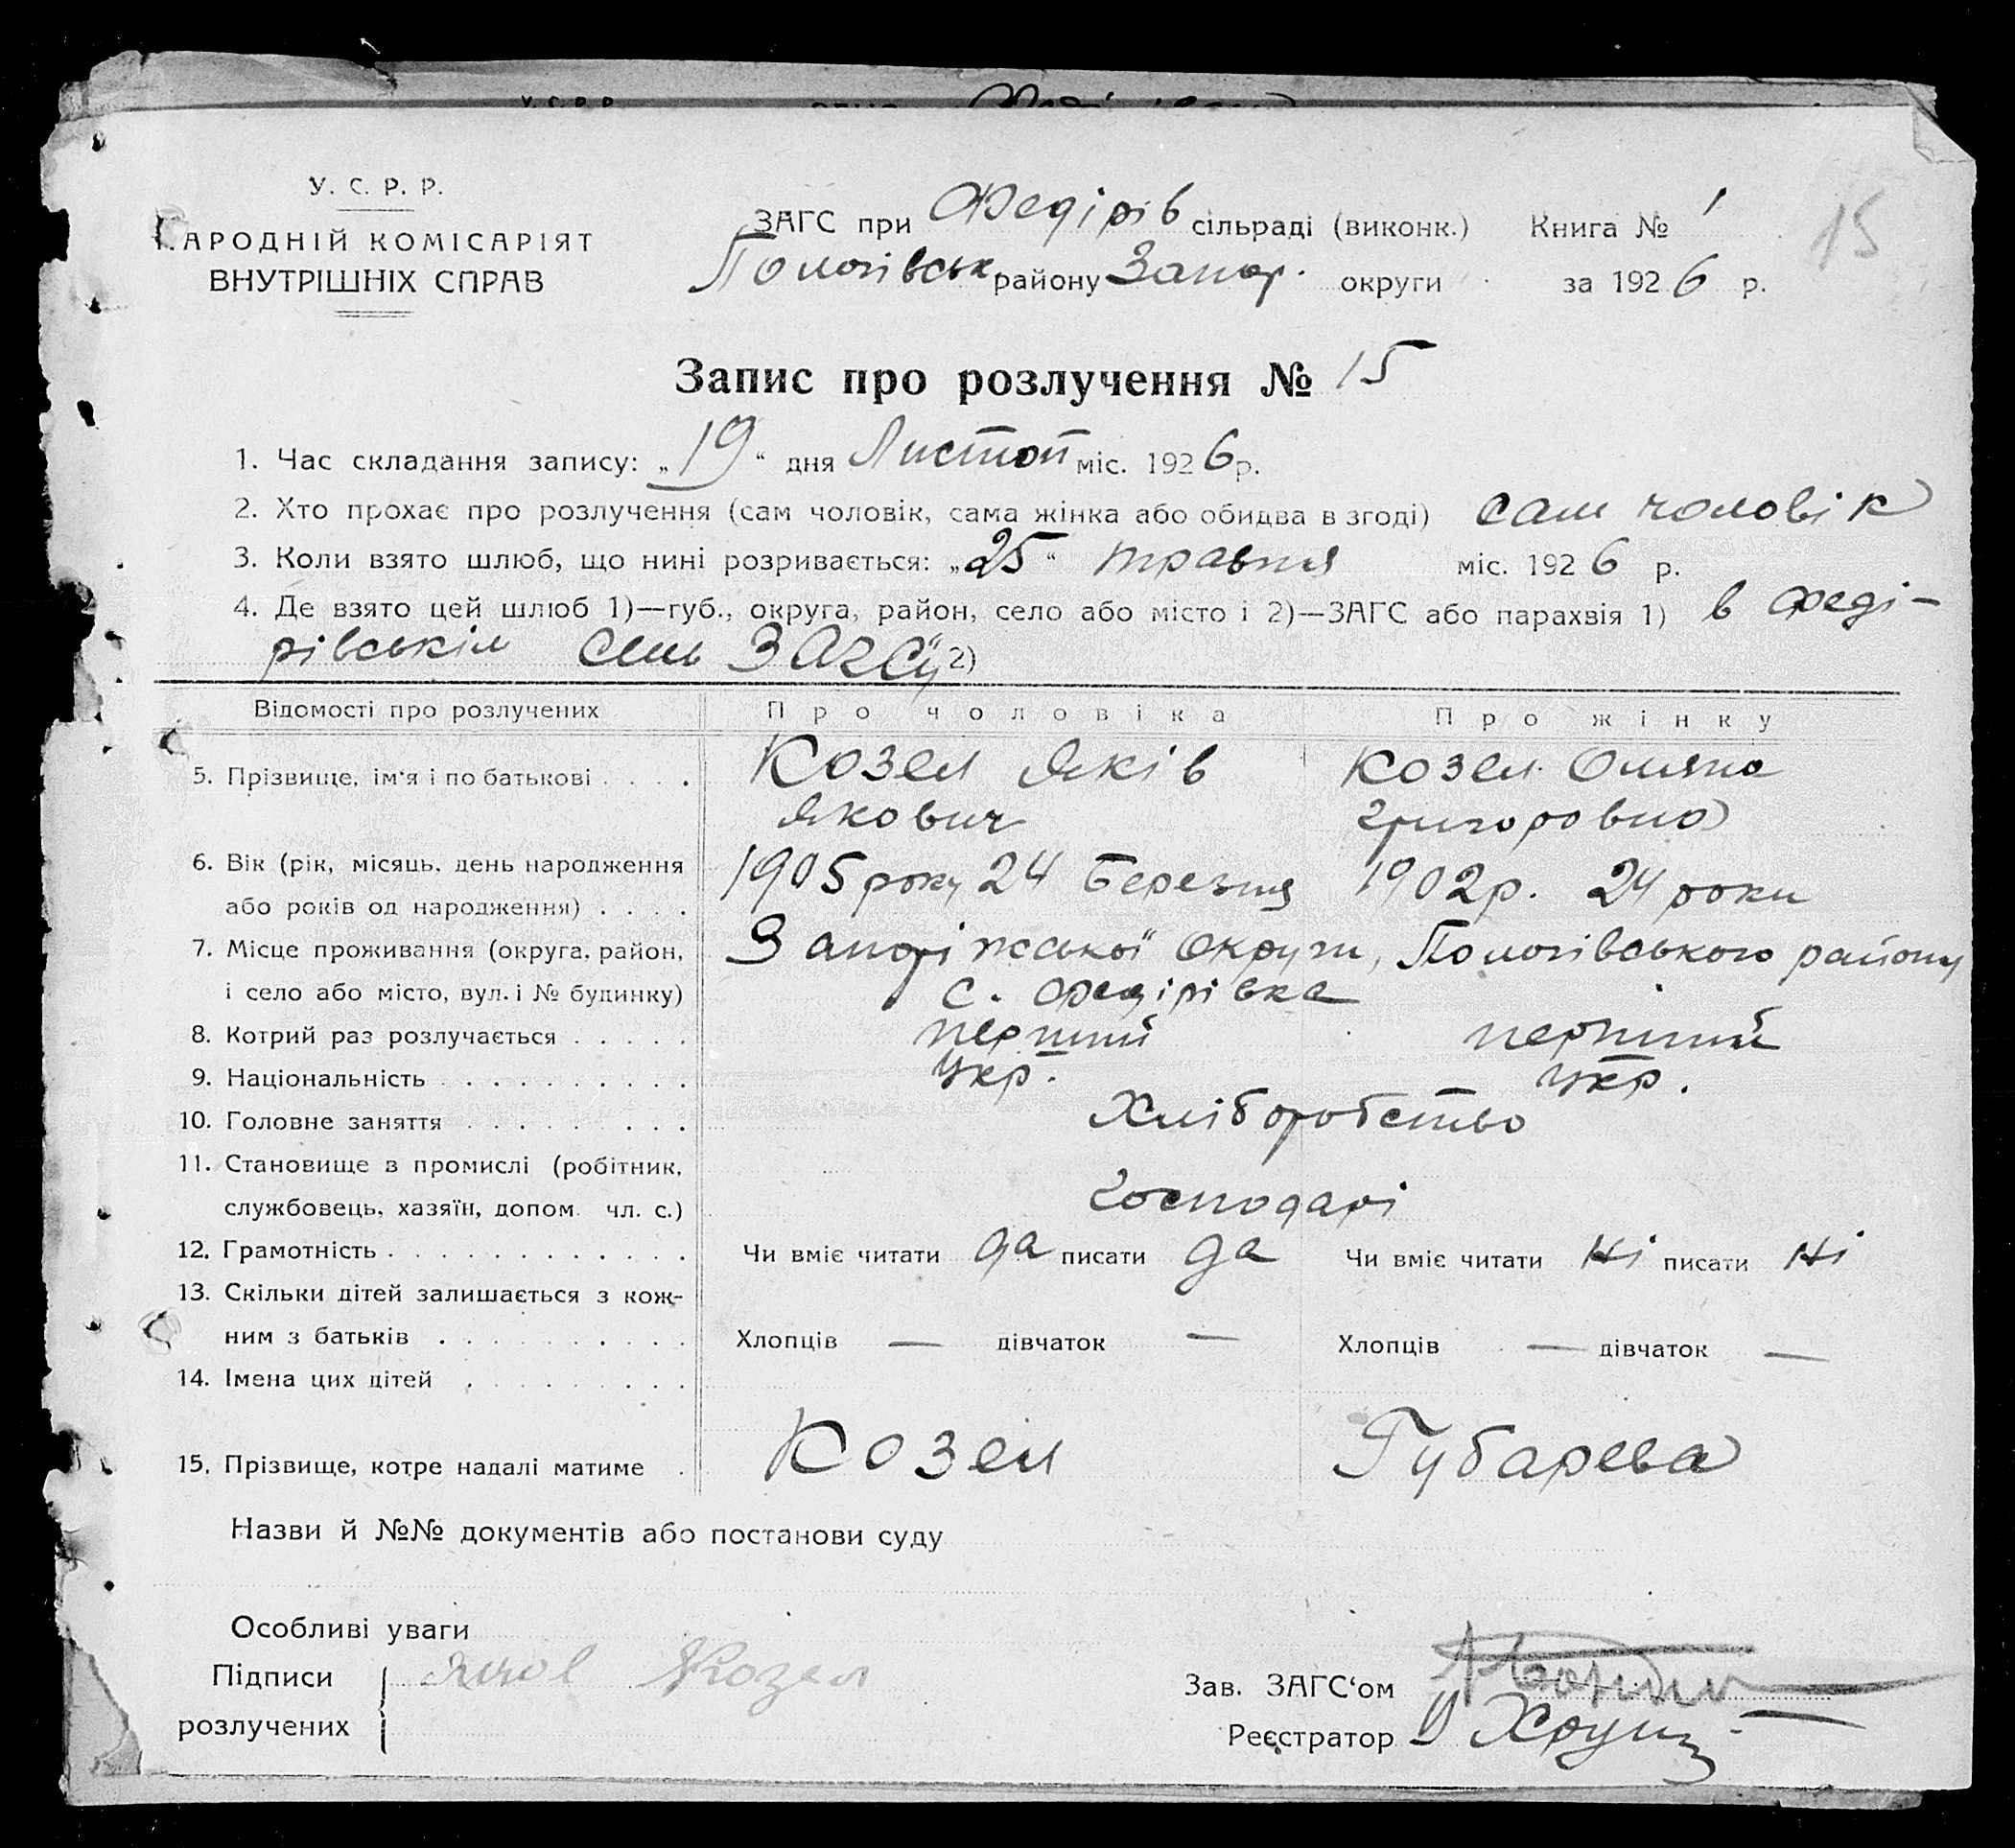 У. С. Р. Р.
НАРОДНІЙ КОМІСАРІЯТ
ВНУТРІШНІХ СПРАВ
ЗАГС при Федірів сільраді (виконк.) Книга № 1
15
Пологівськ району Запор. округи за 1926 р.
Запис про розлучення № 15
1. Час складання запису: „19“ дня Листоп міс. 1926 р.
2. Хто прохає про розлучення (сам чоловік, сама жінка або обидва в згоді) сам чоловік
3. Коли взято шлюб, що нині розривається: „25“ травня міс. 1926 р.
4. Де взято цей шлюб 1)—губ., округа, район, село або місто і 2)—ЗАГС або парахвія 1) в Феді-
рівськім ЗАГСу 2)
Відомості про розлучених Про чоловіка Про жінку
5. Прізвище, ім‘я і по батькові . . . . Козел Яків Козел Оляна
Якович Григоровна
6. Вік (рік, місяць, день народження 1905 року 24 Березня 1902 р. 24 роки
або років од народження) . . . .
7. Місце проживання (округа, район, Запоріжської округи, Пологівського району
і село або місто, вул. і № будинку) с. Федірівка
8. Котрий раз розлучається . . . . . перший перший
9. Національність . . . . . . . . . . Укр. Укр.
10. Головне заняття . . . . . . . . . Хліборобство
11. Становище в промислі (робітник, 
службовець, хазяїн, допом. чл. с.) Господарі
12. Грамотність . . . . . . . . . . . . Чи вміє читати да писати да Чи вміє читати Ні писати Ні
13. Скільки дітей залишається з кож-
ним з батьків . . . . . . . . . . Хлопців — дівчаток — Хлопців — дівчаток —
14. Імена цих дітей . . . . . . . . .
15. Прізвище, котре надалі матиме . Козел Губарева
Назви й №№ документів або постанови суду
Особливі уваги
Підписи Козел
розлучених
Зав. ЗАГС‘ом
Реєстратор